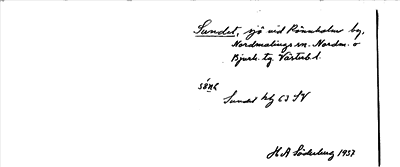 Sundet, sjö vid Rönnholm by,
Nordmalings sn. Nordm. o
Bjurh. tg Västerb. l.
Sundet
H A Söderberg 1937